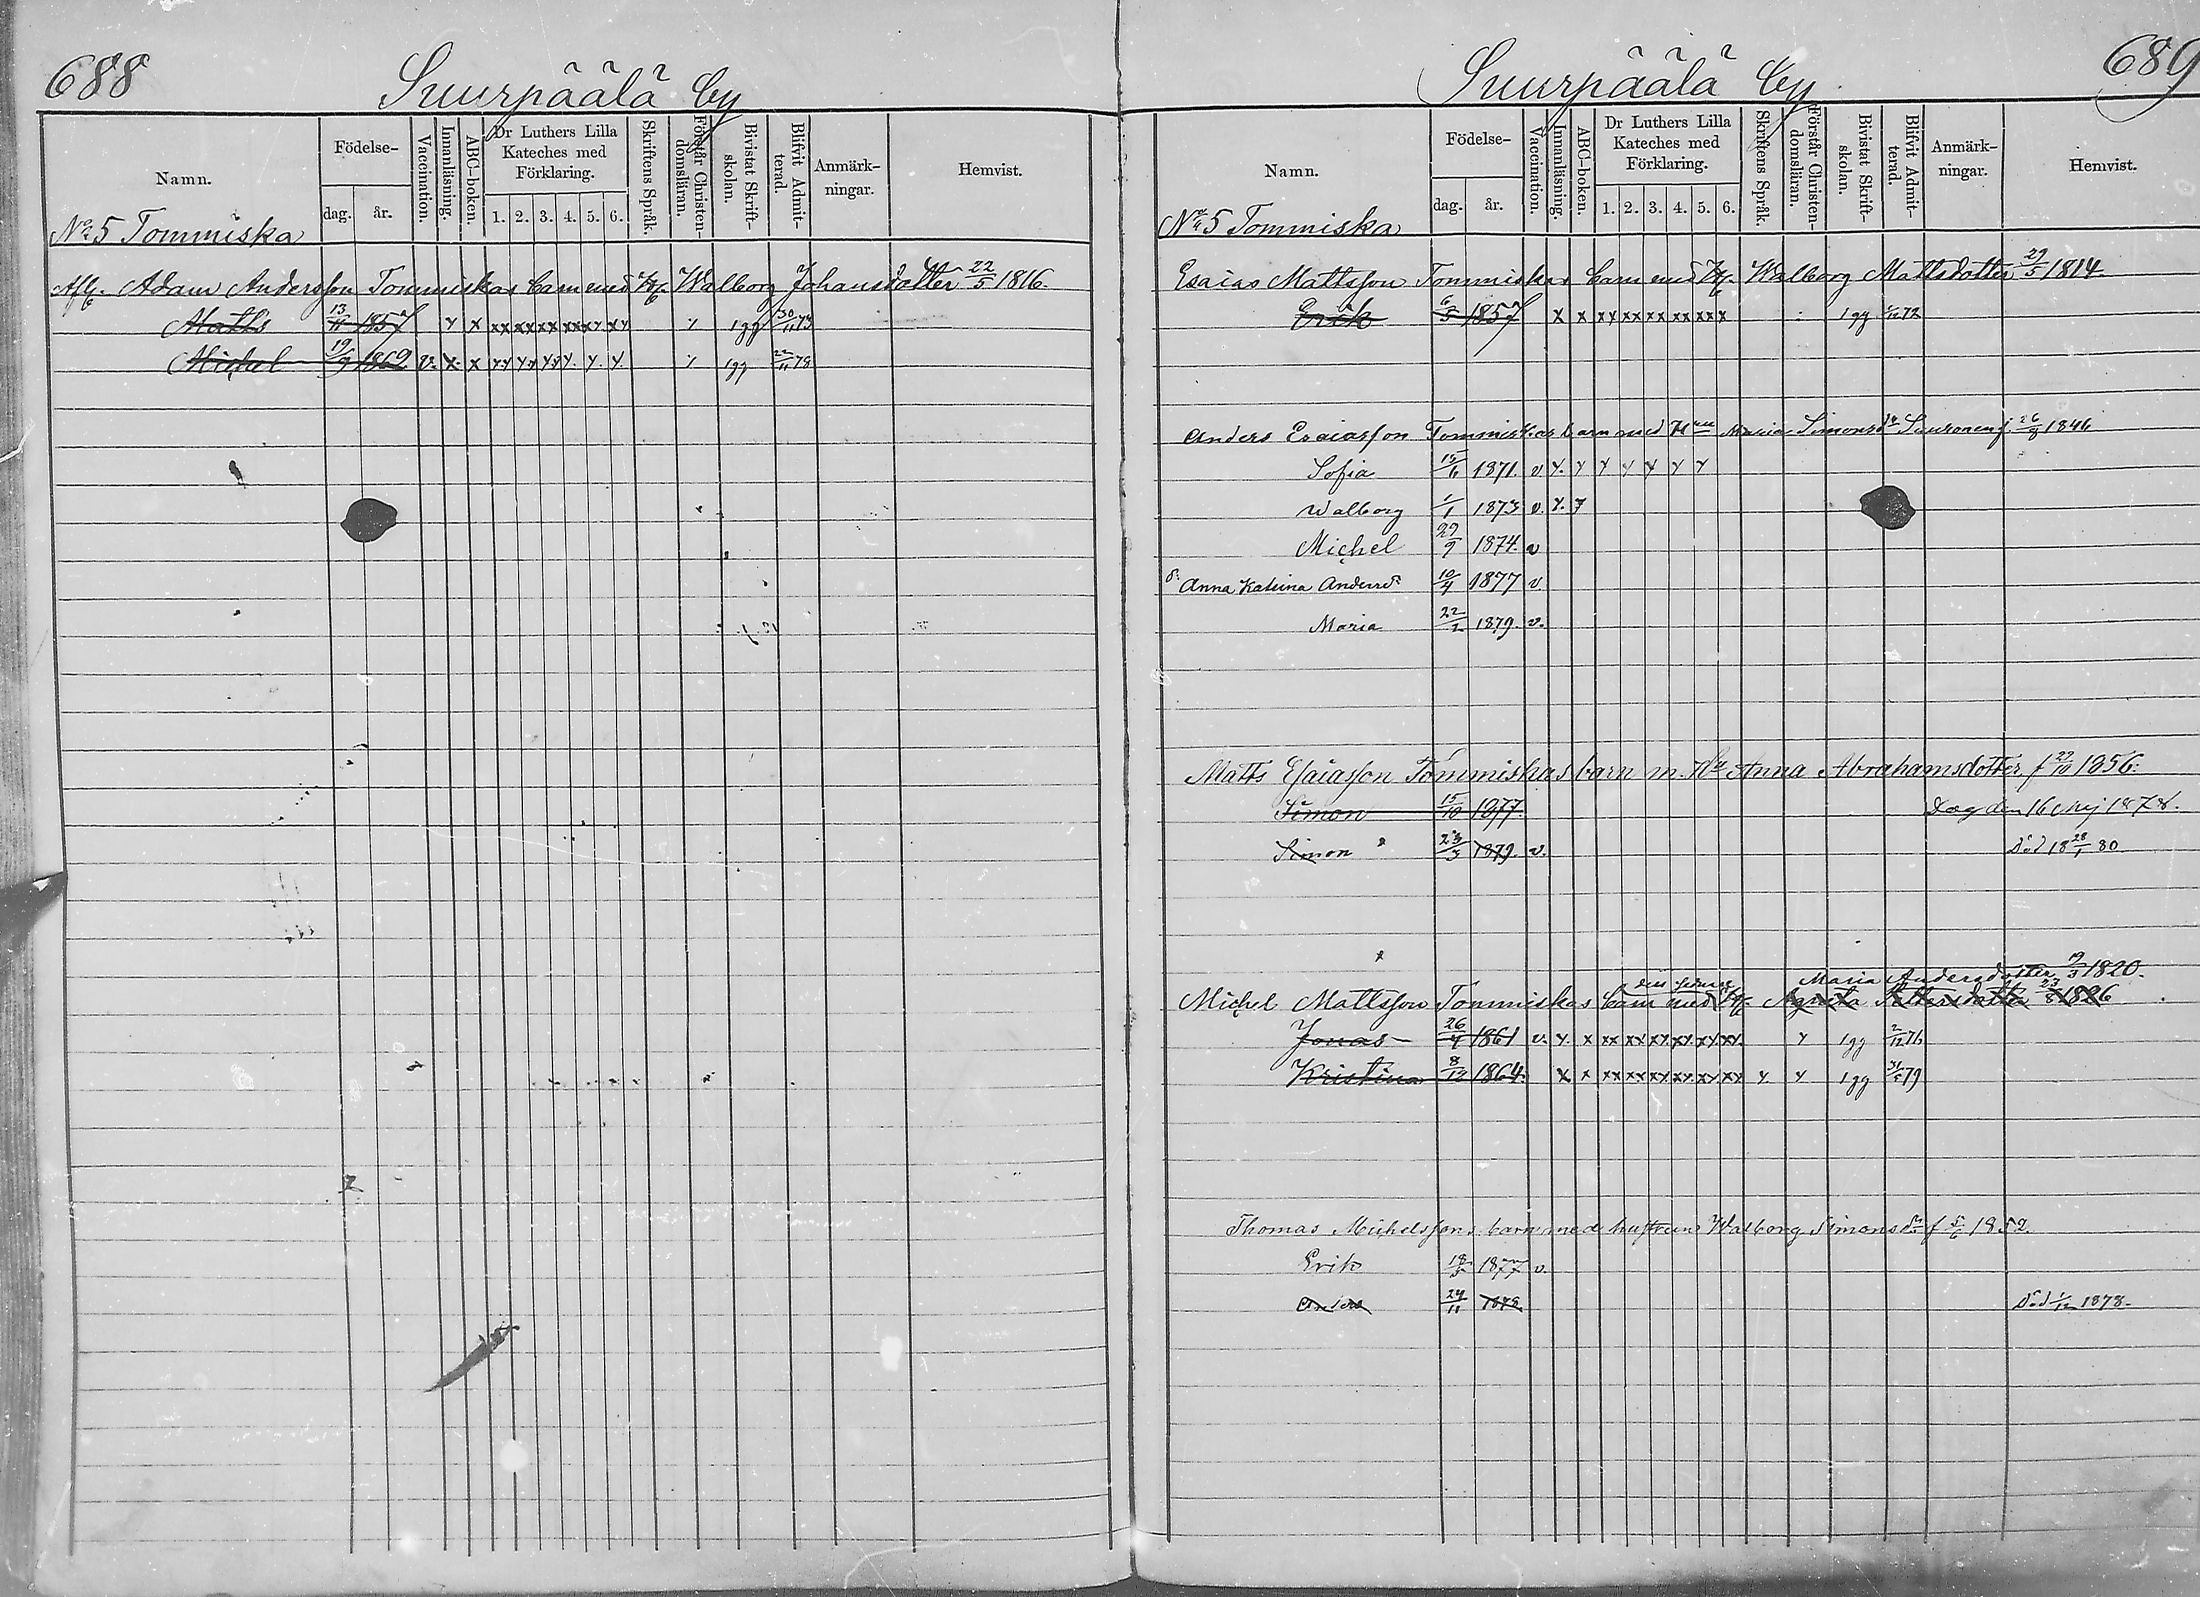 688
Suurpäälä by
Namn.
Födelse-
dag.
år.
Vaccination.
Innanläsning.
ABC-boken.
Dr Luthers Lilla
Kateches med
Förklaring.
1. 2. 3. 4. 5. 6.
Skriftens Språk.
Förstår Christen-
domsläran.
Bivistat Skrift-
skolan.
Blifvit Admit-
terad.
Anmärk-
ningar.
Hemvist.
No 5 Tommiska
Adam Andersson Tommiskas barn med Walborg Johansdotter 22/5 1816.
Matts 1857 x x xx xx xx xx xx 1gg 30/11 73
Michel 19/9 1862 v. x x 1gg 22/11 78
689
Suurpäälä by
Namn.
Födelse-
dag.
år.
Vaccination.
Innanläsning.
ABC-boken.
Dr Luthers Lilla
Kateches med
Förklaring.
1. 2. 3. 4. 5. 6.
Skriftens Språk.
Förstår Christen-
domsläran.
Bivistat Skrift-
skolan.
Blifvit Admit-
terad.
Anmärk-
ningar.
Hemvist.
No 5 Tommiska
Esaias Mattsson Tommiskas barn med Walborg Mattsdotter 1814
Erik 6/5 1857 x x xx xx xx xx xx 1gg 72
Anders Esaiasson Tommiskas barn med Maria Simonsdr Sauronen f. 26/8 1846
Sofia 15/6 1871. v
Walborg 1/1 1873 v.
Michel 29/9 1874. v
Anna Katrina Andersdr 10/4 1877 v.
Maria 22/2 1879. v.
Matts Esaiasson Tommiskas barn m. Hu Anna Abrahamsdotter f 22/10 1856.
Simon 15/10 1877. Dog den 16 Maj 1878.
Simon 23/3 1879. v. Död 18 28/1 80
Maria Andersdotter 19/3 1820.
Michel Mattsson Tommiskas barn med Agneta 23/8 1826
Jonas 26/4 1861 v. x x xx xx xx xx xx xx 1gg 2/12 76
Kristina 8/12 1864. x x xx xx xx xx xx xx 1gg 79
Thomas Michelssons barn med hustrun Walborg Simonsdr f 5/6 1852.
Erik 1877 v.
24/11 1878 Död 1/12 1878.